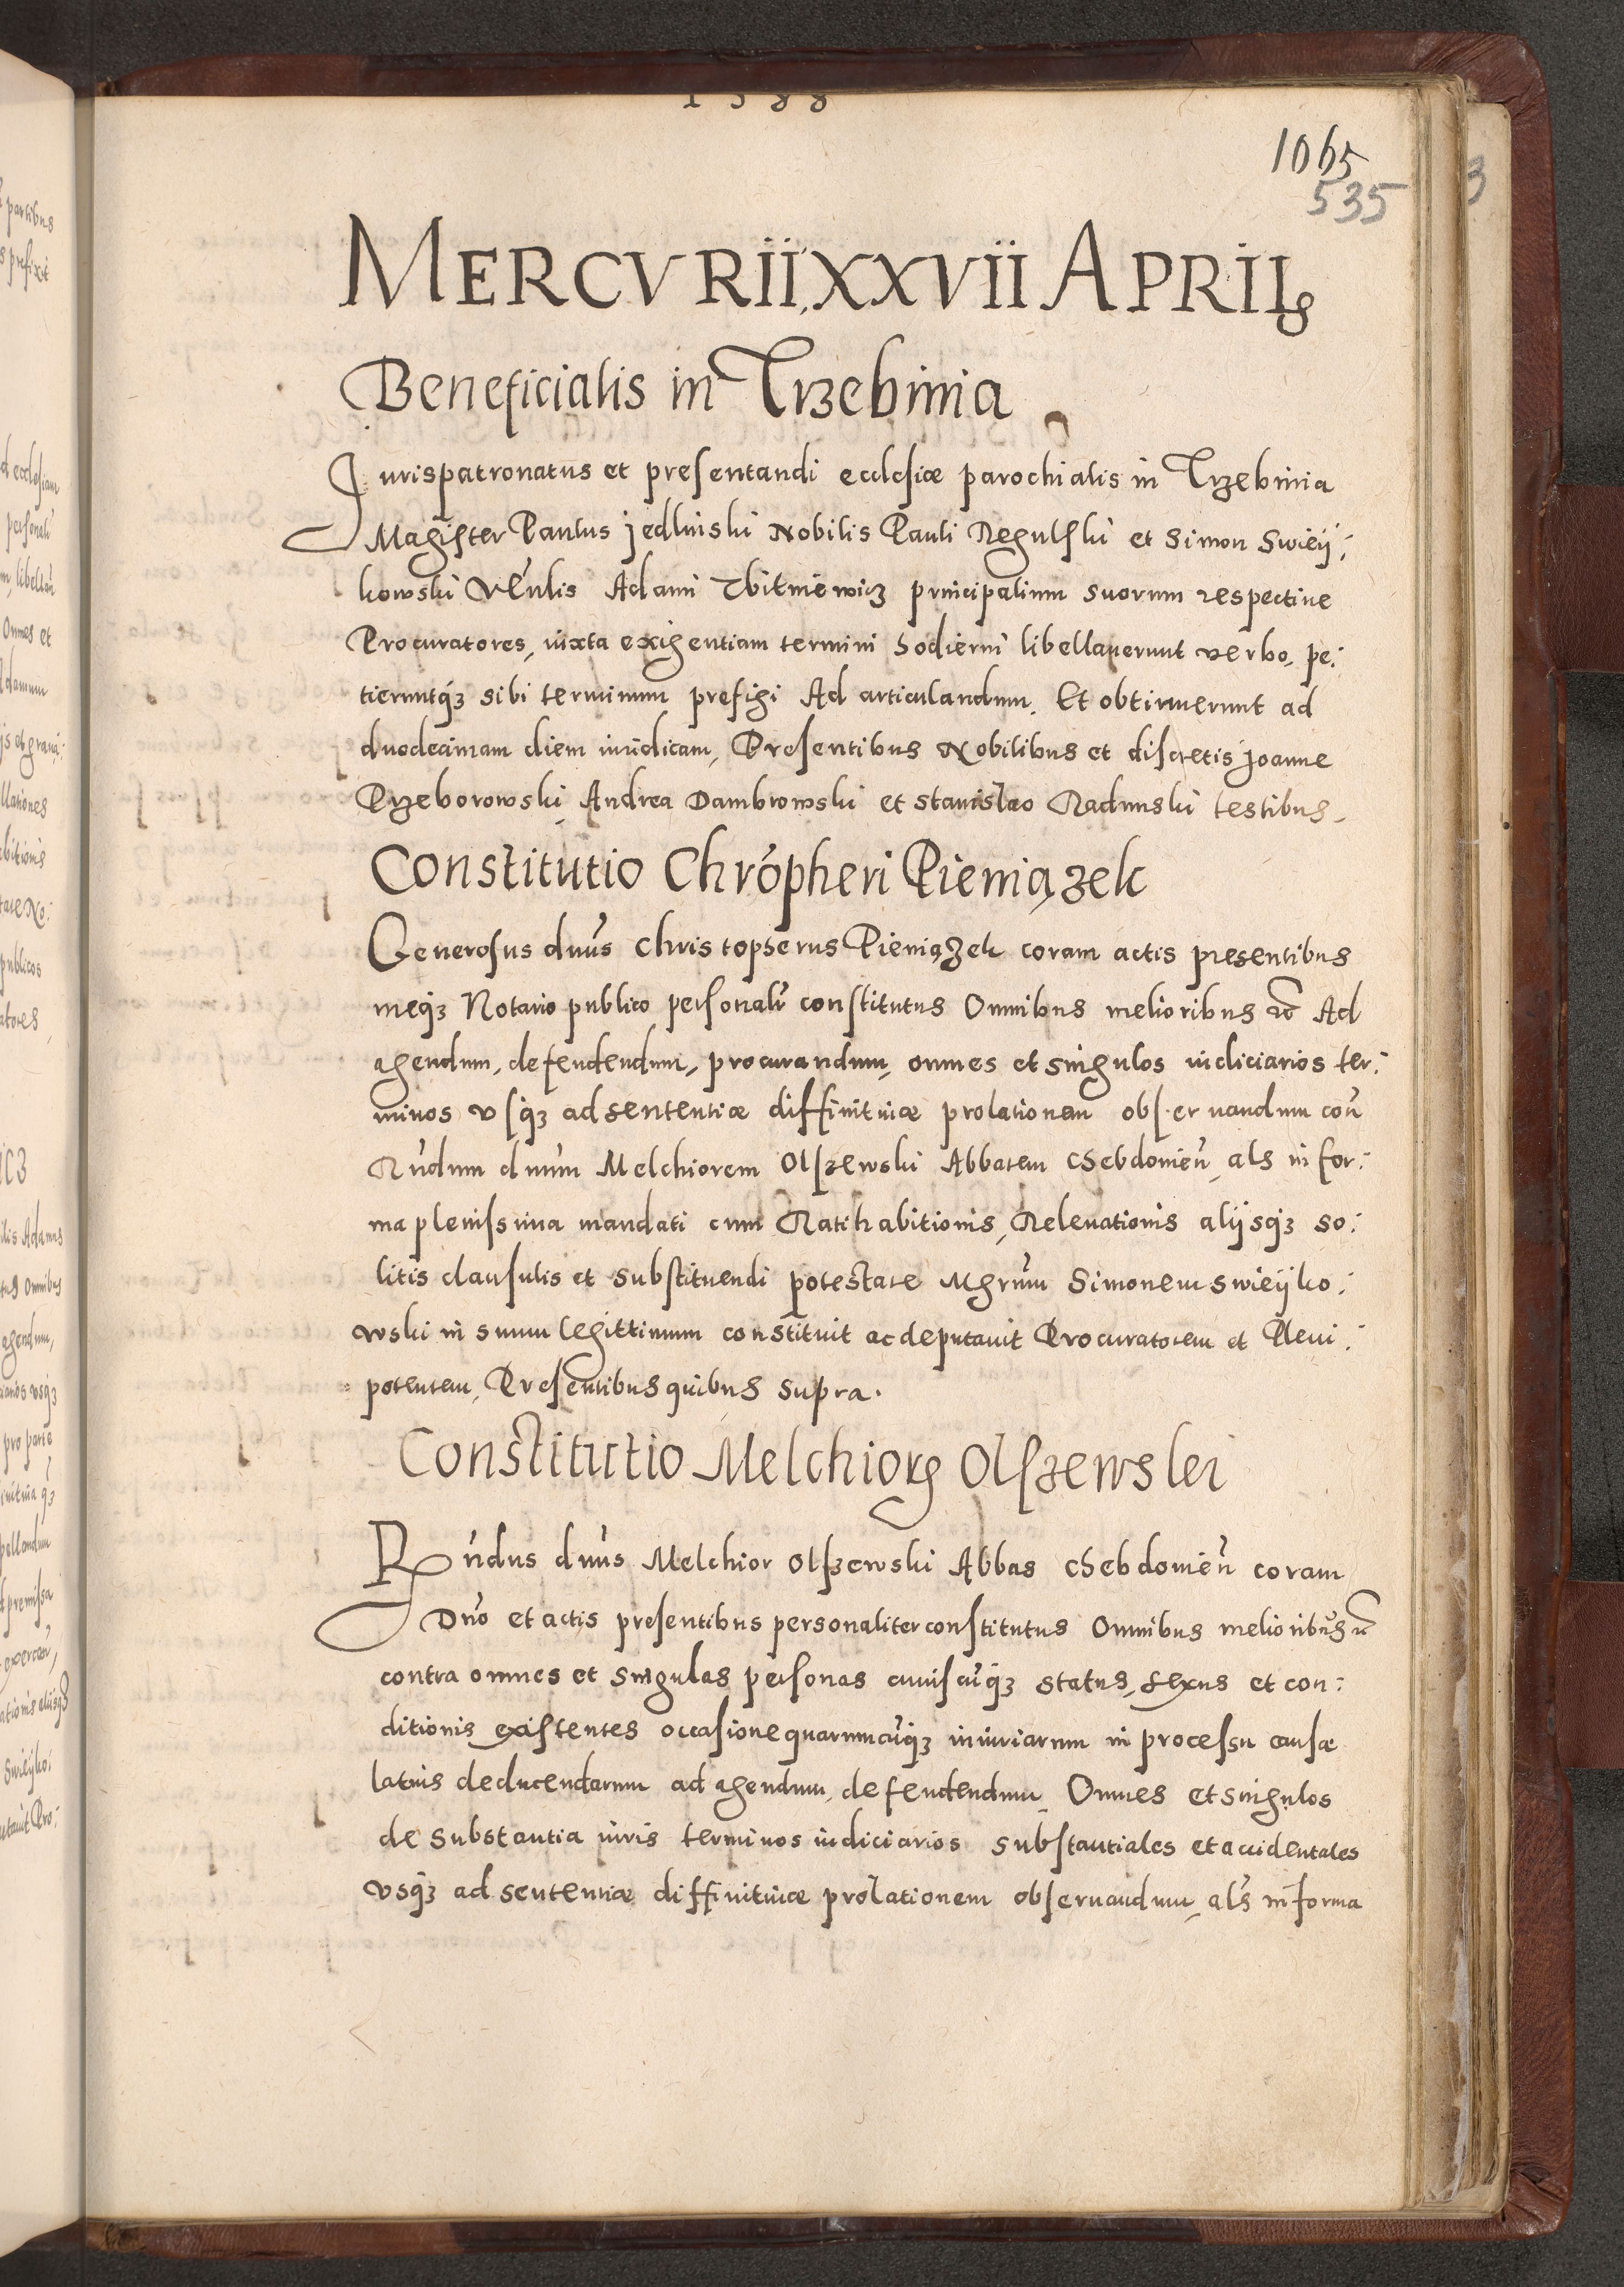 1588
1065
535
MERCVRII, XXVII APRILꝭ
Beneficialis in Trzebinia
Jurispatronatus et presentandi ecclesiæ parochialis in Trzebinia
Magister Paulus Jedlinski Nobilis Pauli Regulski et Simon Swieÿ:
kowski Veñlis Adami principalium suorum respective
Procuratores, iuxta exigentiam termini hodierni libellaverunt verbo, pe:
tieruntqꝫ sibi terminum prefigi Ad articulandum. Et obtinuerunt ad
duodecimam diem iuridicam, Presentibus Nobilibus et discretis Joanne
Przeborowski, Andrea Dambrowski et Stanislao Radunski testibus.
Constitutio Chrõpheri Pieniązek
Generosus dnũs Christopherus Pieniązek coram actis presentibus
meqꝫ Notario publico personalr̃ constitutus Omnibus melioribus ꝛc Ad
agendum, defendendum, procurandum, omnes et singulos iudiciarios ter:
minos usqꝫ ad sententiæ diffinitivæ prolationem observandum coñ
Rñdum dnũm Melchiorem Olszewski Abbatem Chebdomieñ, als in for:
ma plenissima mandati cum Ratihabitionis, Relevationis alijsqꝫ so:
litis clausulis et substituendi potestate Mgrũm Simonem Swieÿko:
wski in suum legittimum constituit ac deputavit Procuratorem et Pleni:
potentem, Presentibus quibus supra.
Constitutio Melchiorꝭ Olszewskei
Rñdus dnũs Melchior Olszewski Abbas Chebdomieñ coram
Dnõ et actis presentibus personaliter constitutus Omnibus melioribus ꝛc
contra omnes et singulas personas cuiuscũqꝫ status, sexus et con:
ditionis existentes occasione quarumcũqꝫ iniuriarum in processu causæ
latius deducendarum ad agendum, defendendum, Omnes et singulos
de substantia iuris terminos iudiciarios substantiales et accidentales
usqꝫ ad sententiæ diffinitivæ prolationem observandum, als in forma